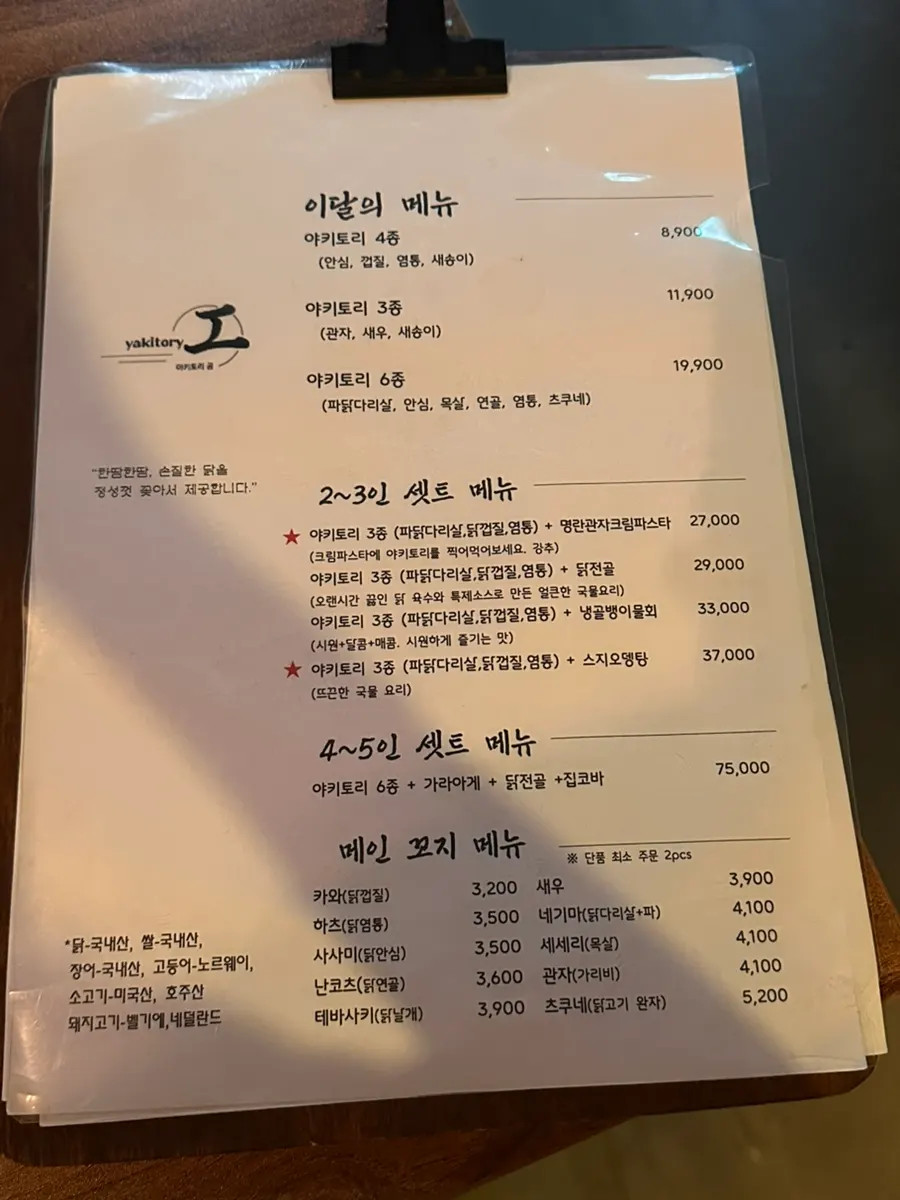 이달의 메뉴
야키토리 4종 8,900
(안심, 껍질, 염통, 새송이)
야키토리 3종 11,900
(관자, 새우, 새송이)
야키토리 6종 19,900
(파닭다리살, 안심, 목살, 연골, 염통, 츠쿠네)
yakitory 工
야키토리 공
"한땀한땀, 손질한 닭을
정성껏 꽂아서 제공합니다."
2~3인 셋트 메뉴
★ 야키토리 3종 (파닭다리살,닭껍질,염통) + 명란관자크림파스타 27,000
(크림파스타에 야키토리를 찍어먹어보세요. 강추)
야키토리 3종 (파닭다리살,닭껍질,염통) + 닭전골 29,000
(오랜시간 끓인 닭 육수와 특제소스로 만든 얼큰한 국물요리)
야키토리 3종 (파닭다리살,닭껍질,염통) + 냉골뱅이물회 33,000
(시원+달콤+매콤. 시원하게 즐기는 맛)
★ 야키토리 3종 (파닭다리살,닭껍질,염통) + 스지오뎅탕 37,000
(뜨끈한 국물 요리)
4~5인 셋트 메뉴
야키토리 6종 + 가라아게 + 닭전골 +집코바 75,000
메인 꼬지 메뉴
※ 단품 최소 주문 2pcs
카와(닭껍질) 3,200 새우 3,900
하츠(닭염통) 3,500 네기마(닭다리살+파) 4,100
사사미(닭안심) 3,500 세세리(목살) 4,100
난코츠(닭연골) 3,600 관자(가리비) 4,100
테바사키(닭날개) 3,900 츠쿠네(닭고기 완자) 5,200
*닭-국내산, 쌀-국내산,
장어-국내산, 고등어-노르웨이,
소고기-미국산, 호주산
돼지고기-벨기에,네덜란드